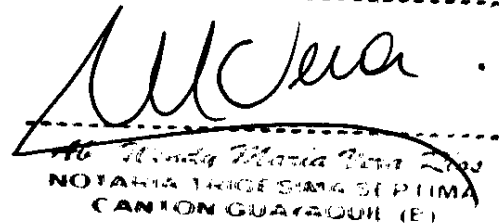 MVera
Ab. Wendy Maria Vera Rios
NOTARIA TRIGESIMA SEPTIMA
CANTON GUAYAQUIL (E)